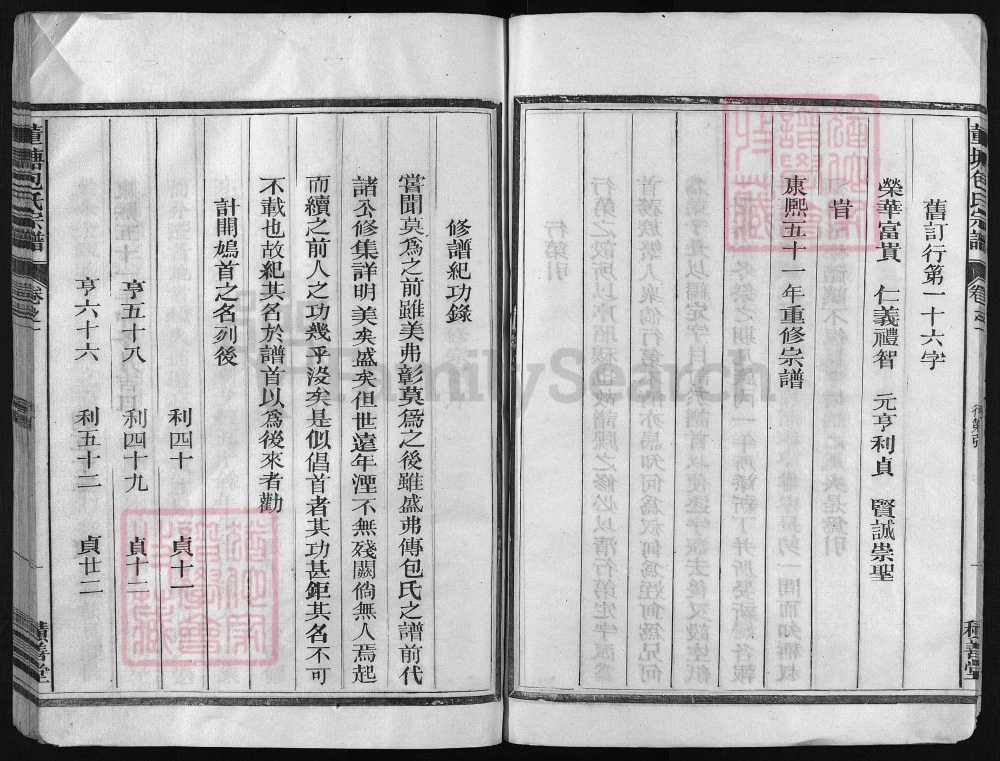 舊訂行第一十六字
榮華富貴 仁義禮智 元亨利貞 賢誠崇聖
旹
康熙五十一年重修宗譜
修譜紀功錄
嘗聞莫爲之前雖美弗彰莫爲之後雖盛弗傳包氏之譜前代
諸公修集詳明美矣盛矣但世遠年湮不無殘闕倘無人焉起
而續之前人之功幾乎沒矣是似倡首者其功甚鉅其名不可
不載也故紀其名於譜首以爲後來者勸
計開嬀首之名列後
利四十 貞十一
亨五十八 利四十九 貞十二
亨六十六 利五十二 貞廿二
董塘包氏宗譜 卷之一
積善堂
FamilySearch